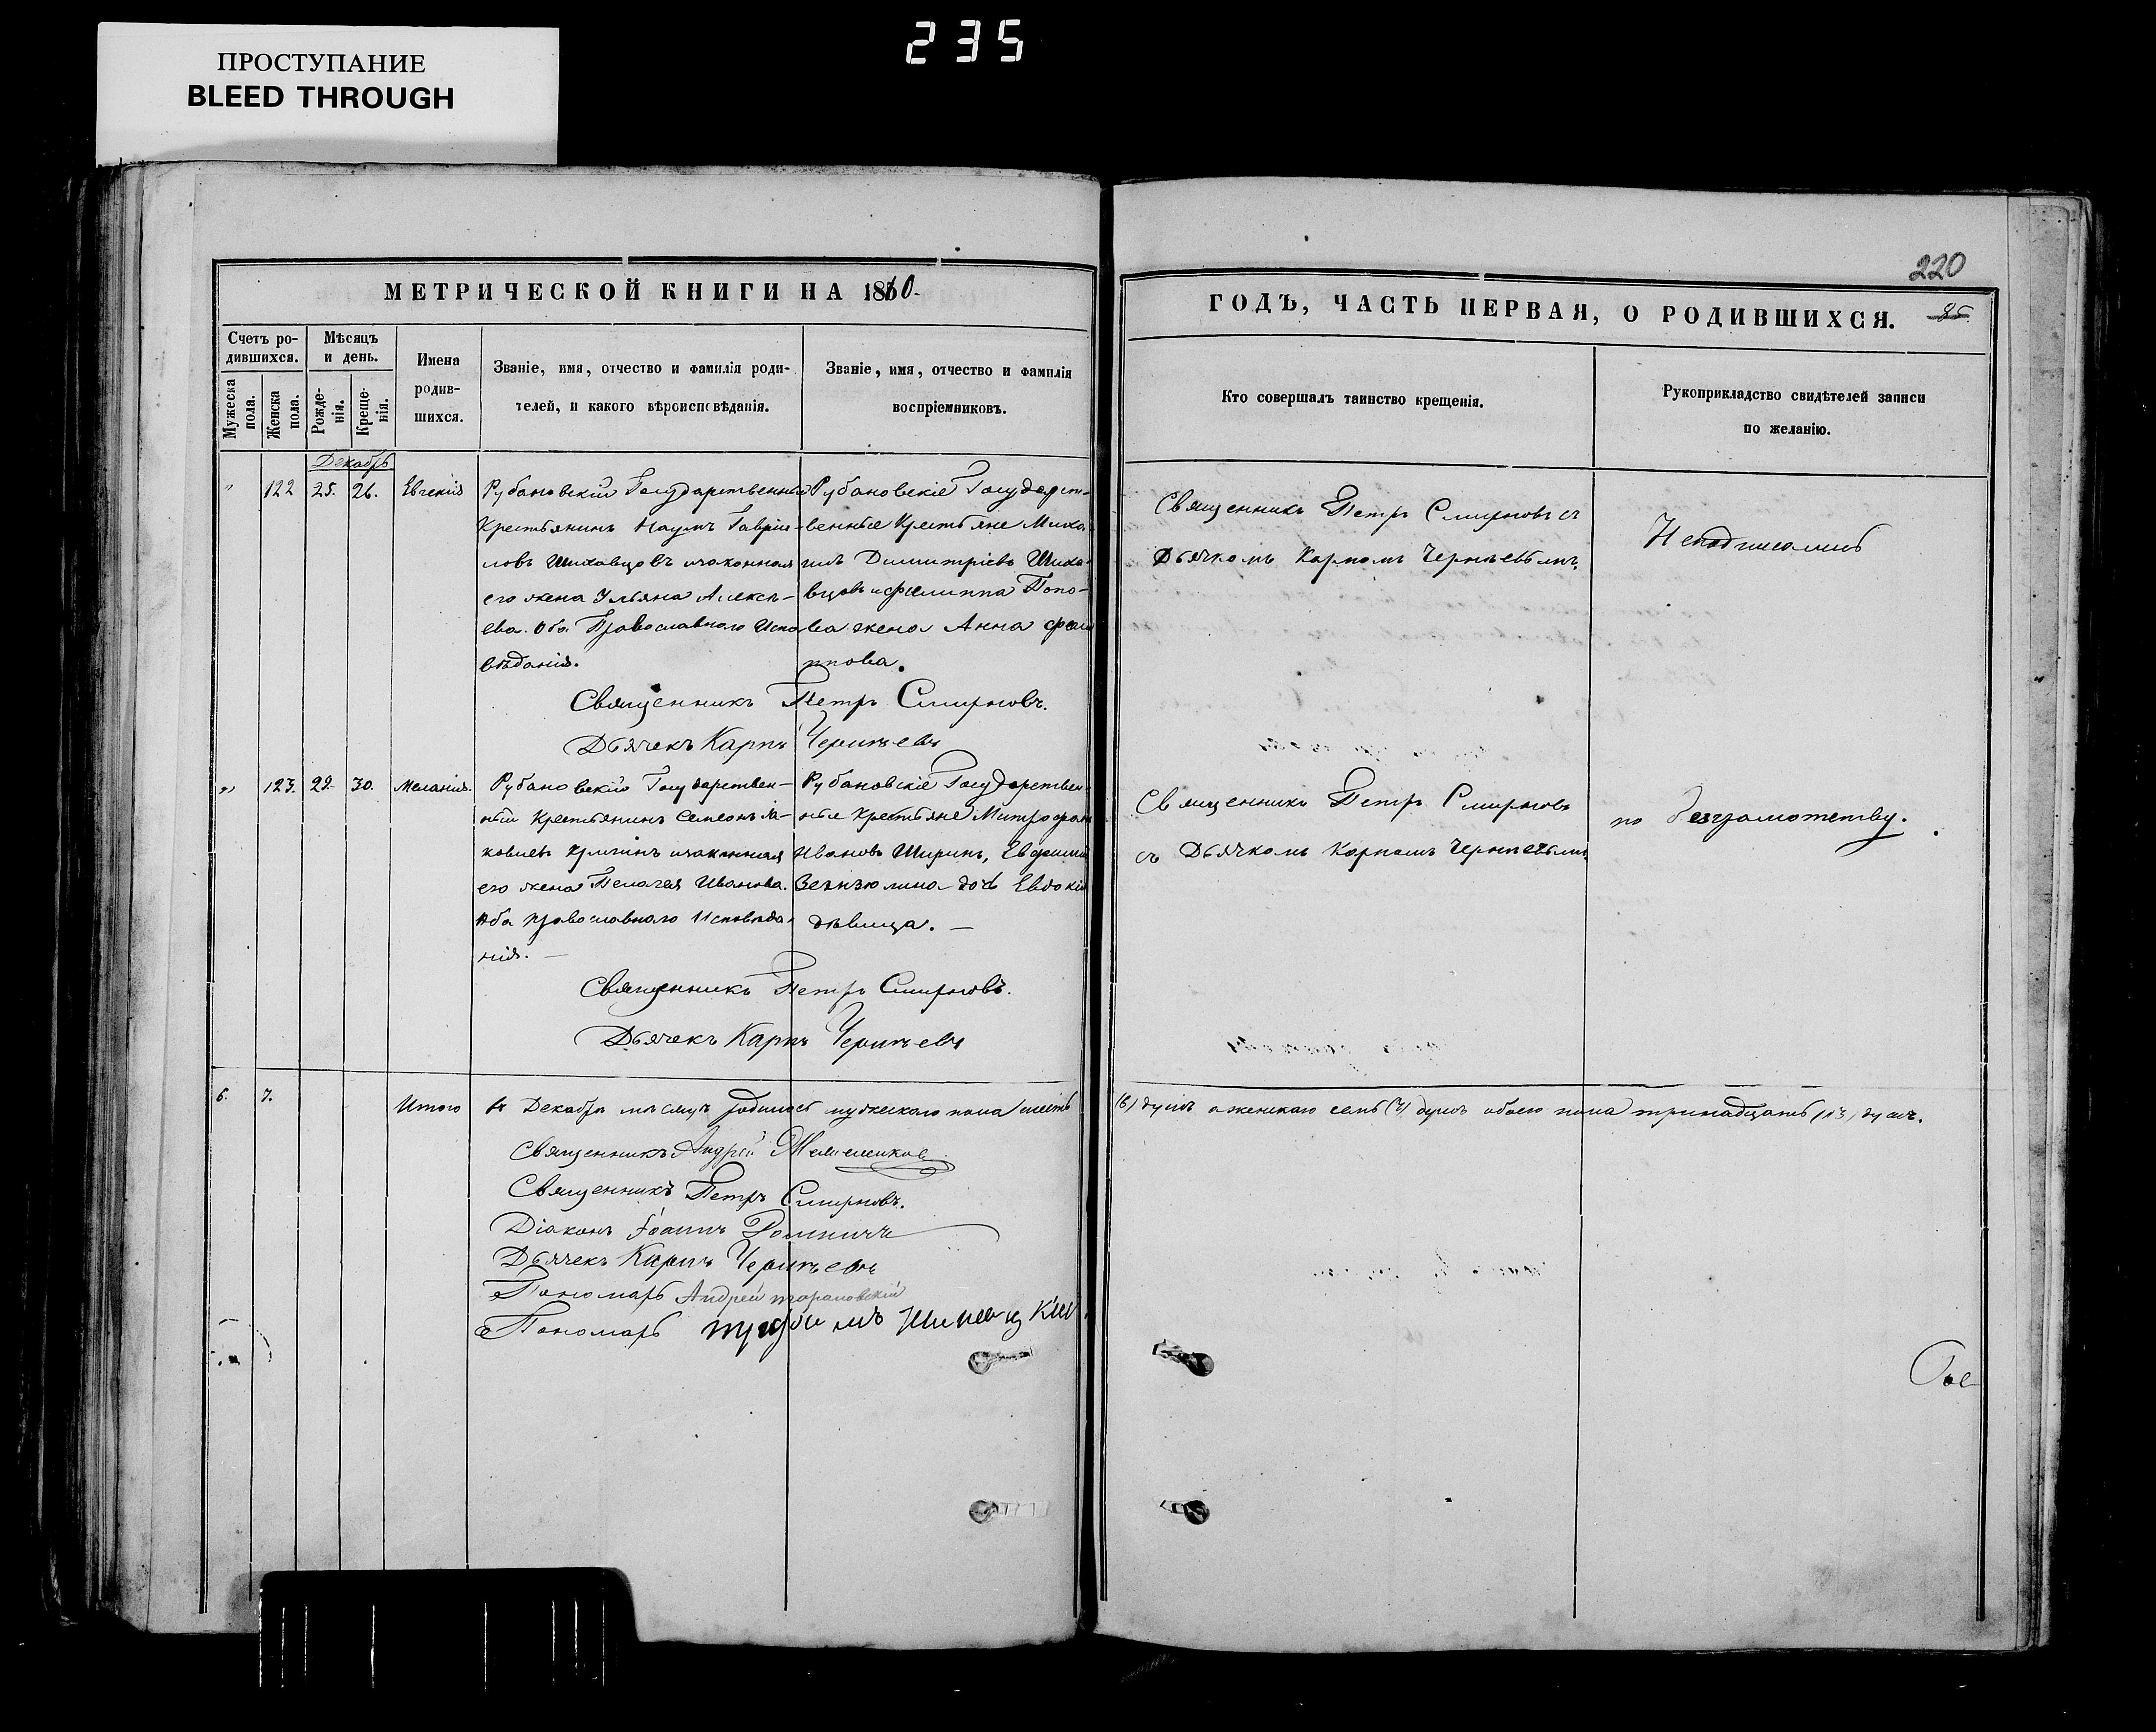 ПРОСТУПАНИЕ
BLEED THROUGH
235
220
МЕТРИЧЕСКОЙ КНИГИ НА 1860.
ГОДЪ, ЧАСТЬ ПЕРВАЯ, О РОДИВШИХСЯ.
Счетъ родившихся.
Мужеска пола.
Женска пола.
Мѣсяцъ и день.
Рожденія.
Крещенія.
Имена
родив-
шихся.
Званіе, имя, отчество и фамилія роди-
телей, и какого вѣроисповѣданія.
Званіе, имя, отчество и фамилія
воспріемниковъ.
Кто совершалъ таинство крещенія.
Рукоприкладство свидѣтелей записи
по желанію.
Декабрь
" 122 25. 26. Евгенія
Рубановскій Государственный
Крестьянинъ Наумъ Гаврии-
ловъ Шиховцовъ и законная
его жена Ульяна Алексѣ-
ева. Оба Православнаго Испо
вѣданія.
Рубановскіе Государст-
венные Крестьяне Миха-
илъ Димитріевъ Шихо-
вцовъ и Филиппа Попо-
ва жена Анна Фили
ппова.
Священникъ Петръ Смирновъ съ
Дьячкомъ Карпомъ
Неподписались
Священникъ Петръ Смирновъ.
Дьячекъ Карпъ
" 123. 30. Меланія.
Рубановскій Государствен-
ный Крестьянинъ Семеонъ Iа-
ковлевъ и законная
его жена Пелагея Иванова.
Оба православнаго Исповѣда-
нія.
Рубановскіе Государствен
ные Крестьяне Митрофан
Ивановъ Ширинъ, Евфимія
дочь Евдокія
дѣвица.
Священникъ Петръ Смирновъ
съ Дьячкомъ Карпомъ
по безграмотству.
Священникъ Петръ Смирновъ.
Дьячекъ Карпъ
6. 7. Итого въ Декабрѣ мѣсяцѣ родилось мужескаго пола шесть
(6) душъ а женскаго семь (7) душъ обоего пола тринадцать (13) душъ.
Священникъ Андрей
Священникъ Петръ Смирновъ.
Діаконъ Іоаннъ
Дьячекъ Карпъ
Пономарь Андрей
Пономарь